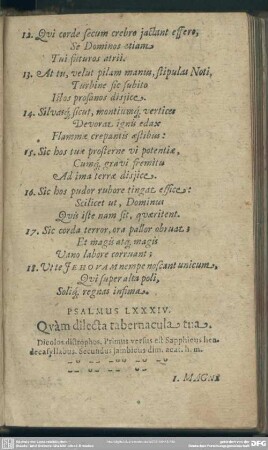 12. Qvi corde secum crebro jactant effero,
Se Dominos etiam
Tui futuros atrii.
13. At tu, velut pilam manu, stipulas Noti,
Turbine sic subito
Istos profanos disjice.
14. Silvamq́; sicut, montiumq́; vertices
Devorat ignis edax
Flammæ crepantis æstibus:
15. Sic hos tuæ prosterne vi potentiæ,
Cuimq́; gravi fremitu
Ad ima terræ disjice.
16. Sic hos pudor rubore tingat effice:
Scilicet ut, Dominus
Qvis iste nam sit, quæritent.
17. Sic corda terror, ora pallor obruat:
Et magis atq́; magis
Vano labore corruant;
18. Ut te JEHOVAM nempe noscant unicum,
Qvi super alta poli,
Soliq́; regnas infima.
PSALMUS LXXXIV.
Qvàm dilecta tabernacula tua.
Dicolos distrophos. Primus versus est Sapphicus hen-
decasyllabus. Secundus jambicus dim. acat. h. m.
1. MAGNE